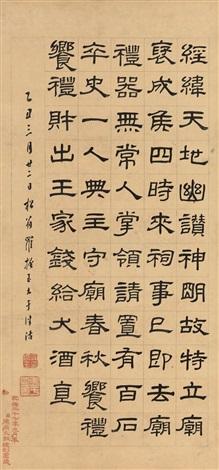 經緯天地幽讚神明故特立廟
褒成侯四時來祠事已即去廟
禮器無常人掌領請置有百石
卒史一人典主守廟春秋饗禮
饗禮財出王家錢給大酒直
乙丑三月廿二日松翁羅振玉書于津沽